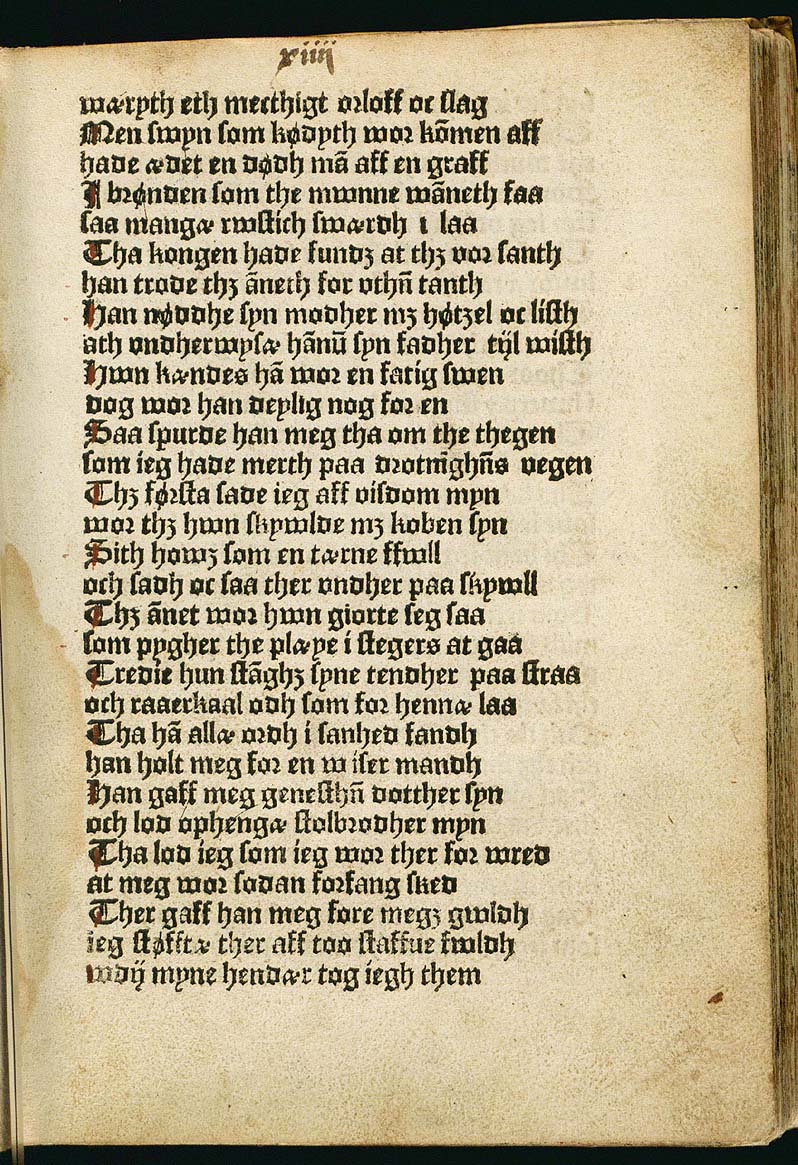 xiiij
wæryth eth mecthigt orloff oc slag
Men swyn som kødyth wor kōmen aff
hade ædet en dødh mā aff en graff
I brønden som the mwnne wāneth faa
saa mangæ rwstich swærdh i laa
Tha kongen hade fundꝫ at thꝫ vor santh
han trode thꝫ āneth for vthn̄ tanth
Han nøddhe syn modher mꝫ høtzel oc listh
ath vndherwysæ hānū syn fadher tijl wisth
Hwn kændes hā wor en fatig swen
dog wor han deylig nog for en
Saa spurde han meg tha om the thegen
som ieg hade merth paa drotnīghn̄s vegen
Thꝫ første sade ieg aff visdom myn
wor thꝫ hwn skywlde mꝫ koben syn
Sith howꝫ som en tærne ffwll
och sadh oc saa ther vndher paa skywll
Thꝫ ānet wor hwn giorte seg saa
som pygher the plæye i stegers at gaa
Tredie hun stāghꝫ syne tendher paa straa
och raaerkaal odh som for hennæ laa
Tha hā allæ ordh i sanhed fandh
han holt meg for en wiser mandh
Han gaff meg genesthn̄ dotther syn
och lod ophengæ stolbrodher myn
Tha lod ieg som ieg wor ther for wred
at meg wor sodan forfang sked
Ther gaff han meg fore megꝫ gwldh
ieg støfftæ ther aff too staffue fwldh
wdij myne hendær tog iegh them